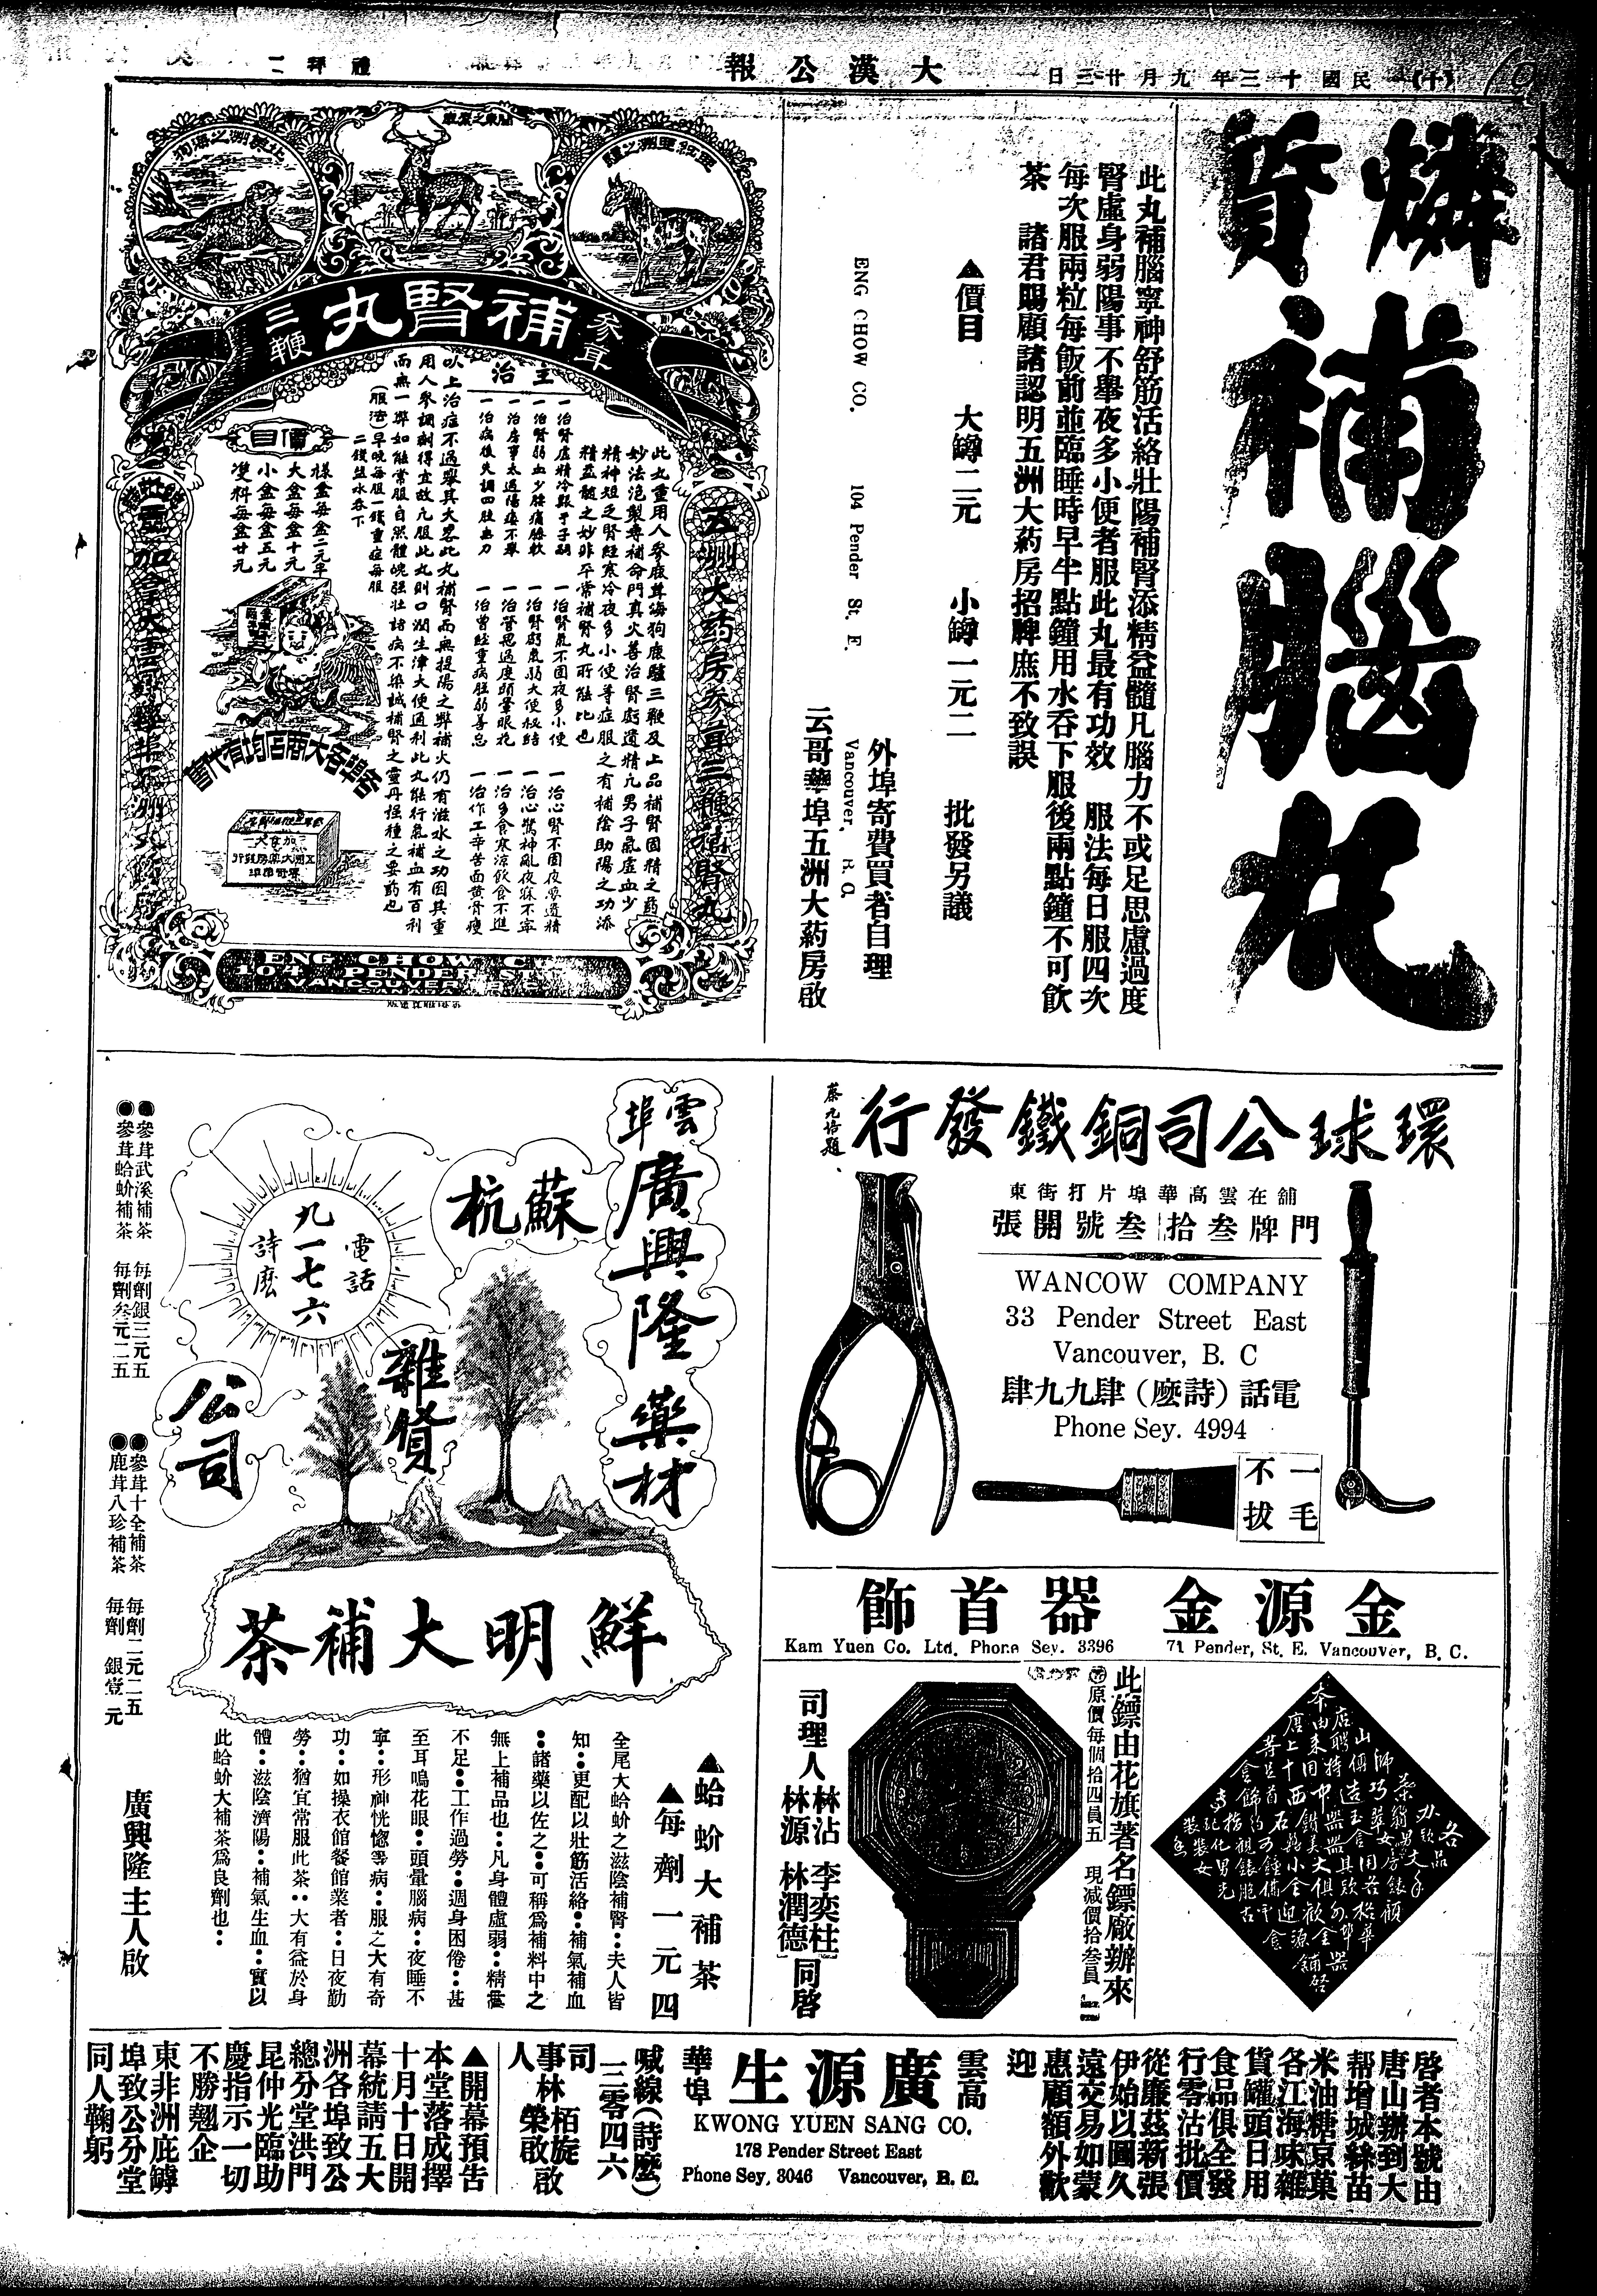 (十) 民國十三年九月廿三日
大漢公報
禮拜二
燐質補腦丸
此丸補腦寧神舒筋活絡壯陽補腎添精益髓凡腦力不或足思慮過度
腎虛身弱陽事不舉夜多小便者服此丸最有功效 服法每日服四次
每次服兩粒每飯前並臨睡時早半點鐘用水吞下服後兩點鐘不可飲
茶 諸君賜顧諸認明五洲大葯房招牌庶不致誤
▲價目 大罇二元 小罇一元二 批發另議
外埠寄費買者自理
ENG CHOW CO. 104 Pender St. E. Vancouver. B. C.
云哥華埠五洲大葯房啟
參茸
補腎丸
三鞭
主治
此丸重用人參鹿茸海狗鹿驢三鞭及上品補腎固精之葯
妙法泡製專補命門真火善治腎虧遺精凡男子氣虛血少
精神短乏腎經寒冷夜多小便等症服之有補陰助陽之功添
精益髓之妙非平常補腎丸所能比也
一治腎虛精冷艱于子嗣 一治腎氣不固夜多小便 一治心腎不固夜夢遺精
一治腎弱血少腰痛膝軟 一治腎虧氣弱大便秘結 一治心驚神亂夜寐不寧
一治房事太過陽痿不舉 一治管思過度頭暈眼花 一治多食寒涼飲食不進
一治病後失調四肢無力 一治曾經重病胆弱善忘 一治作工辛苦面黃骨瘦
以上治症不過舉其大畧此丸補腎而無提陽之弊補火仍有滋水之功因其重
用人參調劑得宜故凡服此丸則口潤生津大便通利此丸能行氣補血有百利
而無一弊如能常服自然體魄强壯諸病不染誠補腎之靈丹强種之要葯也
(服法)早晚每服一錢重症每服
二錢鹽水吞下
價目
樣盒每盒二元半
大盒每盒十元
小盒每盒五元
雙料每盒廿元
各埠各大商店均有代售
五洲大葯房參茸三鞭補腎丸
ENG CHOW CO.
104 PENDER ST. E.
VANCOUVER B.C.
CANADA
環球公司銅鐵發行
蔡元培題
舖在雲高華埠片打街東
門牌叁拾叁號開張
WANCOW COMPANY
33 Pender Street East
Vancouver, B. C
電話(詩麽)肆九九肆
Phone Sey. 4994
一毛
不拔
雲埠
廣興隆藥材
蘇杭
雜貨
公司
電話
九一七六
詩麽
鮮明大補茶
●參茸武溪補茶 每劑銀三元五
●參茸蛤蚧補茶 每劑叁元二五
●參茸十全補茶 每劑二元二五
●鹿茸八珍補茶 每劑 銀壹元
▲蛤蚧大補茶
▲每劑一元四
全尾大蛤蚧之滋陰補腎：夫人皆
知：更配以壯筋活絡：補氣補血
：諸藥以佐之：可稱爲補料中之
無上補品也：凡身體虛弱：精靈
不足：工作過勞：週身困倦：甚
至耳鳴花眼：頭暈腦病：夜睡不
寧：形神恍惚等病：服之大有奇
功：如操衣館餐館業者：日夜勤
勞：猶宜常服此茶：大有益於身
體：滋陰濟陽：補氣生血：實以
此蛤蚧大補茶爲良劑也：
廣興隆主人啟
金源金器首飾
Kam Yuen Co. Ltd. Phone Sey. 3396 71 Pender, St. E. Vancouver, B. C.
此鏢由花旗著名鏢廠辦來
原價每個拾四員五 現减價拾叁員
司理人
林沾 李奕柱
林源 林潤德
同啓
啓者本號由
唐山辦到大
帮增城絲苗
米油糖京菓
各江海味雜
貨罐頭日用
食品俱全發
行零沽批價
從廉茲新張
伊始以圖久
遠交易如蒙
惠顧額外歡
迎
雲高華埠
廣源生
KWONG YUEN SANG CO.
178 Pender Street East
Phone Sey, 3046 Vancouver, B. C.
喊線(詩麽)
三零四六
司事人
林栢旋
林榮啟
啟
▲開幕預告
本堂落成擇
十月十日開
幕統請五大
洲各埠致公
總分堂洪門
昆仲光臨助
慶指示一切
不勝翹企
東非洲庇罅
埠致公分堂
同人鞠躬